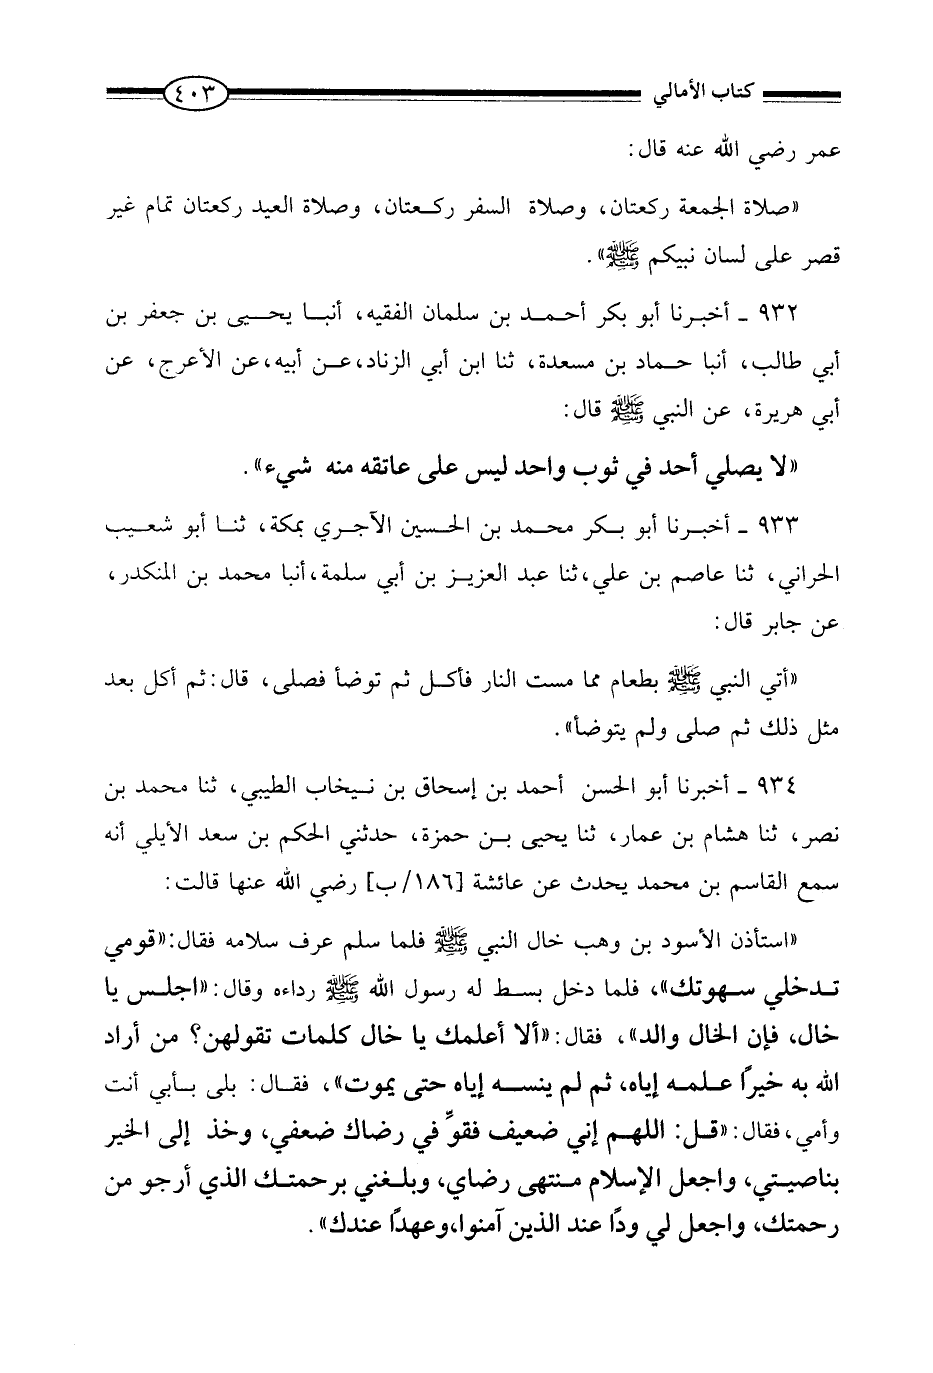 كتاب الأمالي ٤٠٣
عمر رضي الله عنه قال:
«صلاة الجمعة ركعتان، وصلاة السفر ركعتان، وصلاة العيد ركعتان تمام غير
قصر على لسان نبيكم ﷺ».
٩٣٢ ـ أخبرنا أبو بكر أحمد بن سلمان الفقيه، أنبا يحيى بن جعفر بن
أبي طالب، أنبا حماد بن مسعدة، ثنا ابن أبي الزناد، عن أبيه، عن الأعرج، عن
أبي هريرة، عن النبي ﷺ قال:
«لا يصلي أحد في ثوب واحد ليس على عاتقه منه شيء».
٩٣٣ ـ أخبرنا أبو بكر محمد بن الحسين الآجري بمكة، ثنا أبو شعيب
الحراني، ثنا عاصم بن علي، ثنا عبد العزيز بن أبي سلمة، أنبا محمد بن المنكدر،
عن جابر قال:
«أتي النبي ﷺ بطعام مما مست النار فأكل ثم توضأ فصلى، قال: ثم أكل بعد
مثل ذلك ثم صلى ولم يتوضأ».
٩٣٤ ـ أخبرنا أبو الحسن أحمد بن إسحاق بن نيخاب الطيبي، ثنا محمد بن
نصر، ثنا هشام بن عمار، ثنا يحيى بن حمزة، حدثني الحكم بن سعد الأيلي أنه
سمع القاسم بن محمد يحدث عن عائشة [١٨٦/ب] رضي الله عنها قالت:
«استأذن الأسود بن وهب خال النبي ﷺ فلما سلم عرف سلامه فقال: «قومي
تدخلي سهوتك»، فلما دخل بسط له رسول الله ﷺ رداءه وقال: «اجلس يا
خال، فإن الخال والد»، فقال: «ألا أعلمك يا خال كلمات تقولهن؟ من أراد
الله به خيرًا علمه إياه، ثم لم ينسه إياه حتى يموت»، فقال: بلى بأبي أنت
وأمي، فقال: «قل: اللهم إني ضعيف فقوِّ في رضاك ضعفي، وخذ إلى الخير
بناصيتي، واجعل الإسلام منتهى رضاي، وبلغني برحمتك الذي أرجو من
رحمتك، واجعل لي ودًا عند الذين آمنوا، وعهدًا عندك».